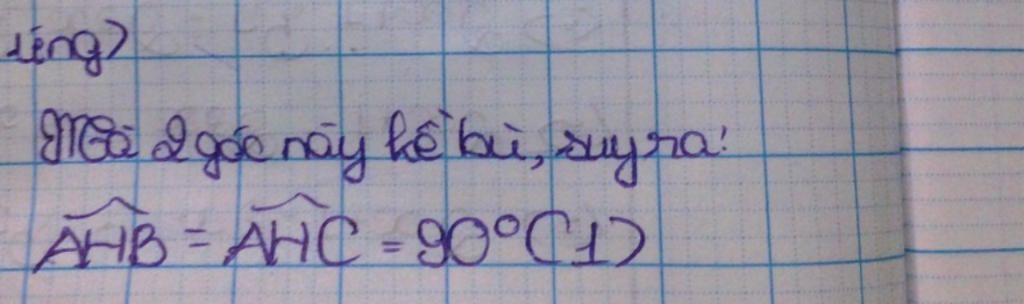 ứng)
Mà 2 góc này kề bù, suy ra:
\widehat{AHB} = \widehat{AHC} = 90° (1)